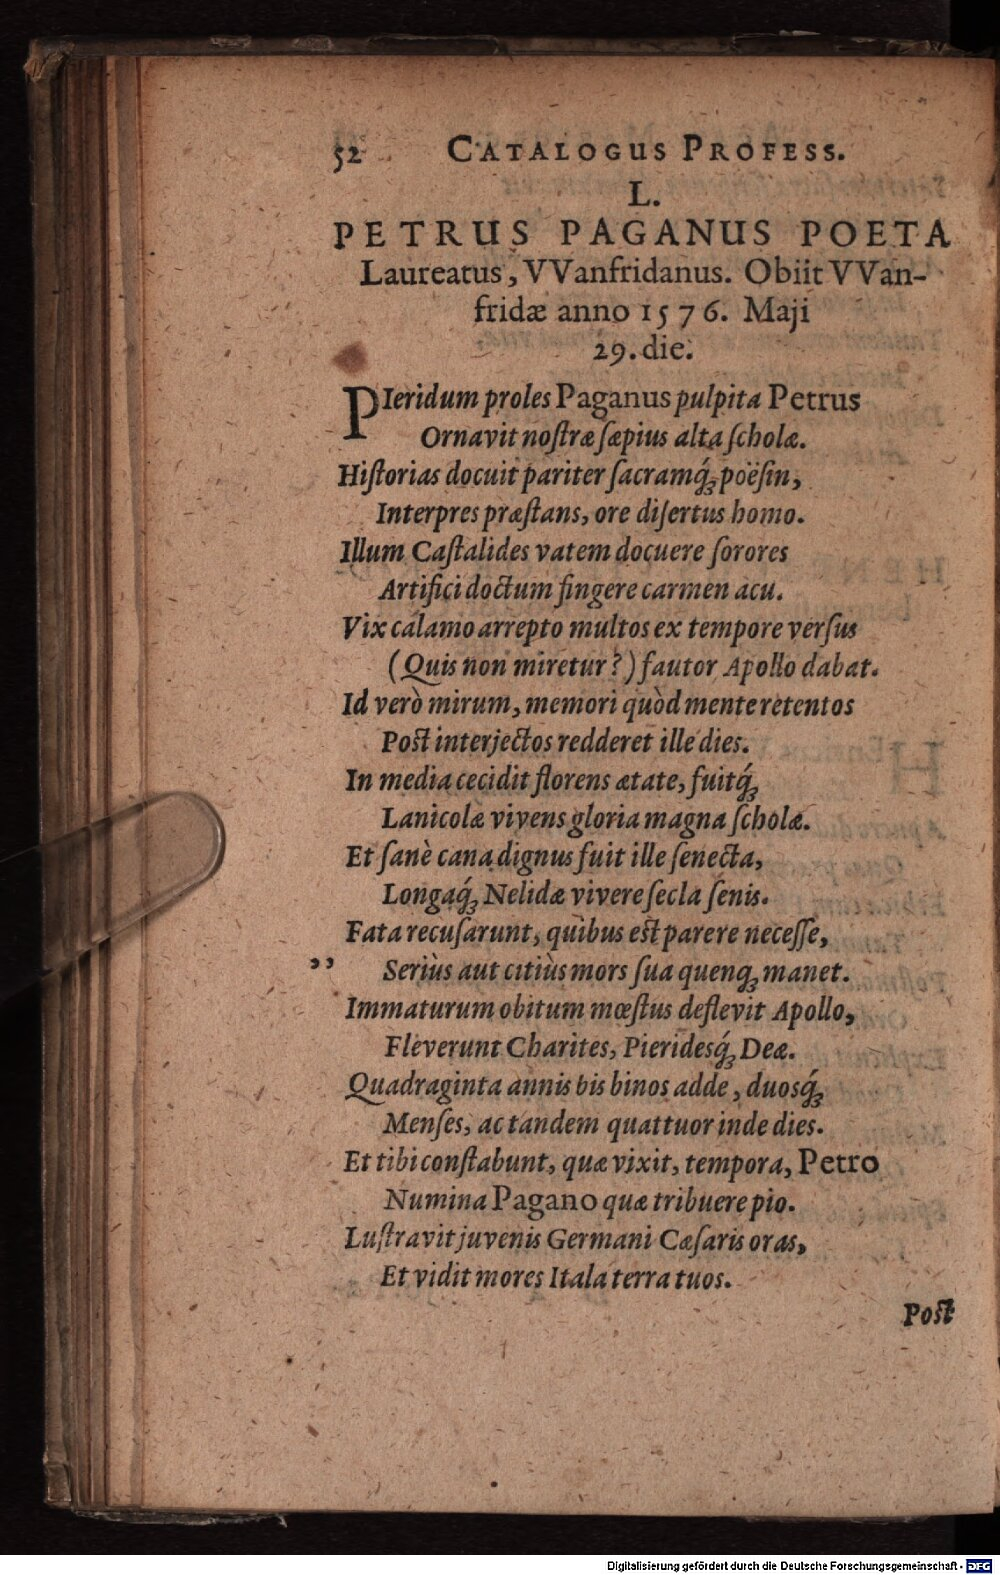 52 CATALOGUS PROFESS.
L.
PETRUS PAGANUS POETA
Laureatus, VVanfridanus. Obiit VVan-
fridæ anno 1576. Maji
29. die.
PIeridum proles Paganus pulpita Petrus
Ornavit noſtræ ſæpius alta ſcholæ.
Hiſtorias docuit pariter ſacramq́ꝫ poëſin,
Interpres præſtans, ore diſertus homo.
Illum Caſtalides vatem docuere ſorores
Artifici doctum fingere carmen acu.
Vix calamo arrepto multos ex tempore verſus
(Quis non miretur?) fautor Apollo dabat.
Id verò mirum, memori quòd mente retentos
Poſt interjectos redderet ille dies.
In media cecidit florens ætate, fuitq́ꝫ
Lanicolæ vivens gloria magna ſcholæ.
Et ſanè cana dignus fuit ille ſenecta,
Longaq́ꝫ Nelidæ vivere ſecla ſenis.
Fata recuſarunt, quibus eſt parere neceſſe,
,, Seriùs aut citiùs mors ſua quenqꝫ manet.
Immaturum obitum mœſtus deflevit Apollo,
Fleverunt Charites, Pieridesq́ꝫ Deæ.
Quadraginta annis bis binos adde, duosq́ꝫ
Menſes, ac tandem quattuor inde dies.
Et tibi conſtabunt, quæ vixit, tempora, Petro
Numina Pagano quæ tribuere pio.
Luſtravit juvenis Germani Cæſaris oras,
Et vidit mores Itala terra tuos.
Poſt
Digitalisierung gefördert durch die Deutsche Forschungsgemeinschaft - DFG